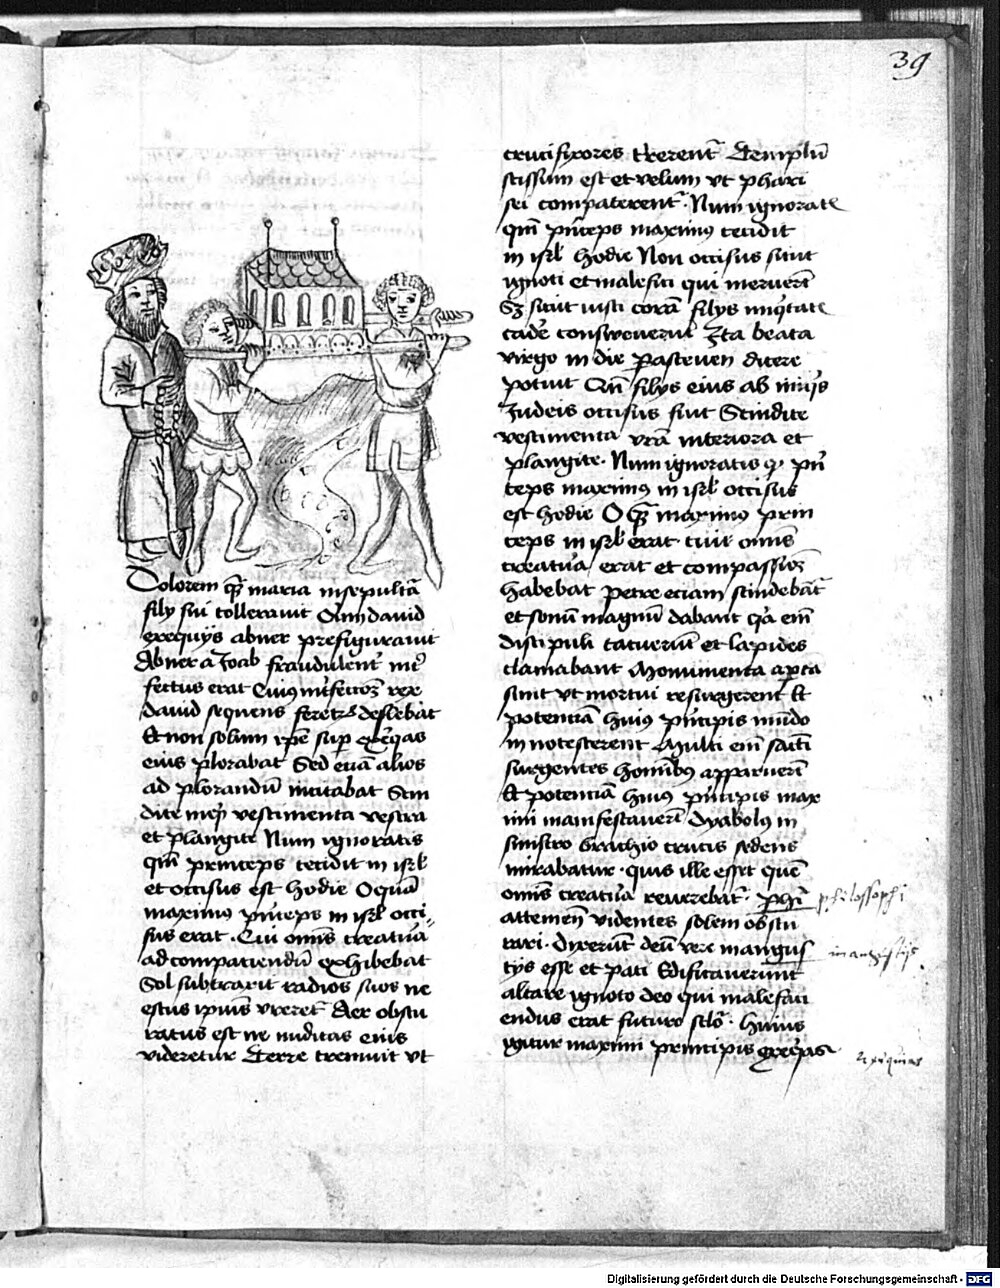 39
Dolorem q̄ maria in sepultā
filij sui tollerauit Cum dauid
exequijs abner prefigurauit
Abner a Joab fraudulent͛ int͛
fectus erat Cuius int͛fectōꝫ rex
dauid sequens feretꝝ deflebat
Et non solum ip̄e sup̱ exeq̄as
eius plorabat Sed eciā alios
ad plorandū incitabat Scin
dite inq̄t vestimenta vestra
et plangite Num ignoratis
qm̄ princeps cecidit in isrl̄
et occisus est hodie O quā
maximus p̄nceps in isrl̄ occi
sus erat . Cui om̄is creatura
ad compaciendū exhibebat
Sol subtraxit radios suos ne
estus ip̄ius vreret͛ Aer obscu
ratus est ne nuditas eius
videretur Terre tremuit vt
crucifixores terrerent͛ Templū
scissum est et velum vt phari
sei compaterent͛ . Num ignorat
qm̄ p̄nceps maximus cecidit
in isrl̄ hodie Non occisus sicut
ignoti et malefici qui meruert̄
Sꝫ sicut iusti corā filijs iniq̄tate
cade͛ consweuerūt Ita beata
virgo in die pasceuen dicere
potuit Qn̄ filius eius ab inijs
Judeis occisus fiut Scindite
vestimenta vr̄a interiora et
plangite . Num ignoratis qꝫ p̄n
ceps maximus in isrl̄ occisus
est hodie O q̄ maximus prin
ceps in isrl̄ erat . cui om̄is
creatura erat et compassioꝫ
habebat Petre eciam scindebāt͛
et sonum magnum dabant q̄a em̄
discipuli tacuerūt et lapides
clamabant Monumenta ap̱ta
sunt vt mortui resurgerent Et
potenciā huius p̄ncipis mūdo
innotescerent Multi em̄ sācti
surgentes hominibꝰ apparuert̄
Et potenciā huius p̄ncipis max
imi manifestauert̄ Dyabolus in
sinistro brachio crucis sedens
mirabatur . quis ille esset quē
om̄is creatura reuerebat͛ . Ph̄i
attamen videntes solem obscu
rari . Dixerūt deū vere in angus
tijs esse et pati Edificauerunt
altare ignoto deo qui malefaci
endus erat futuro sclo͛ . Huius
igitur maximi principis exeq̄as
philosophi
in angustijs
exequias
Digitalisierung gefördert durch die Deutsche Forschungsgemeinschaft - DFG